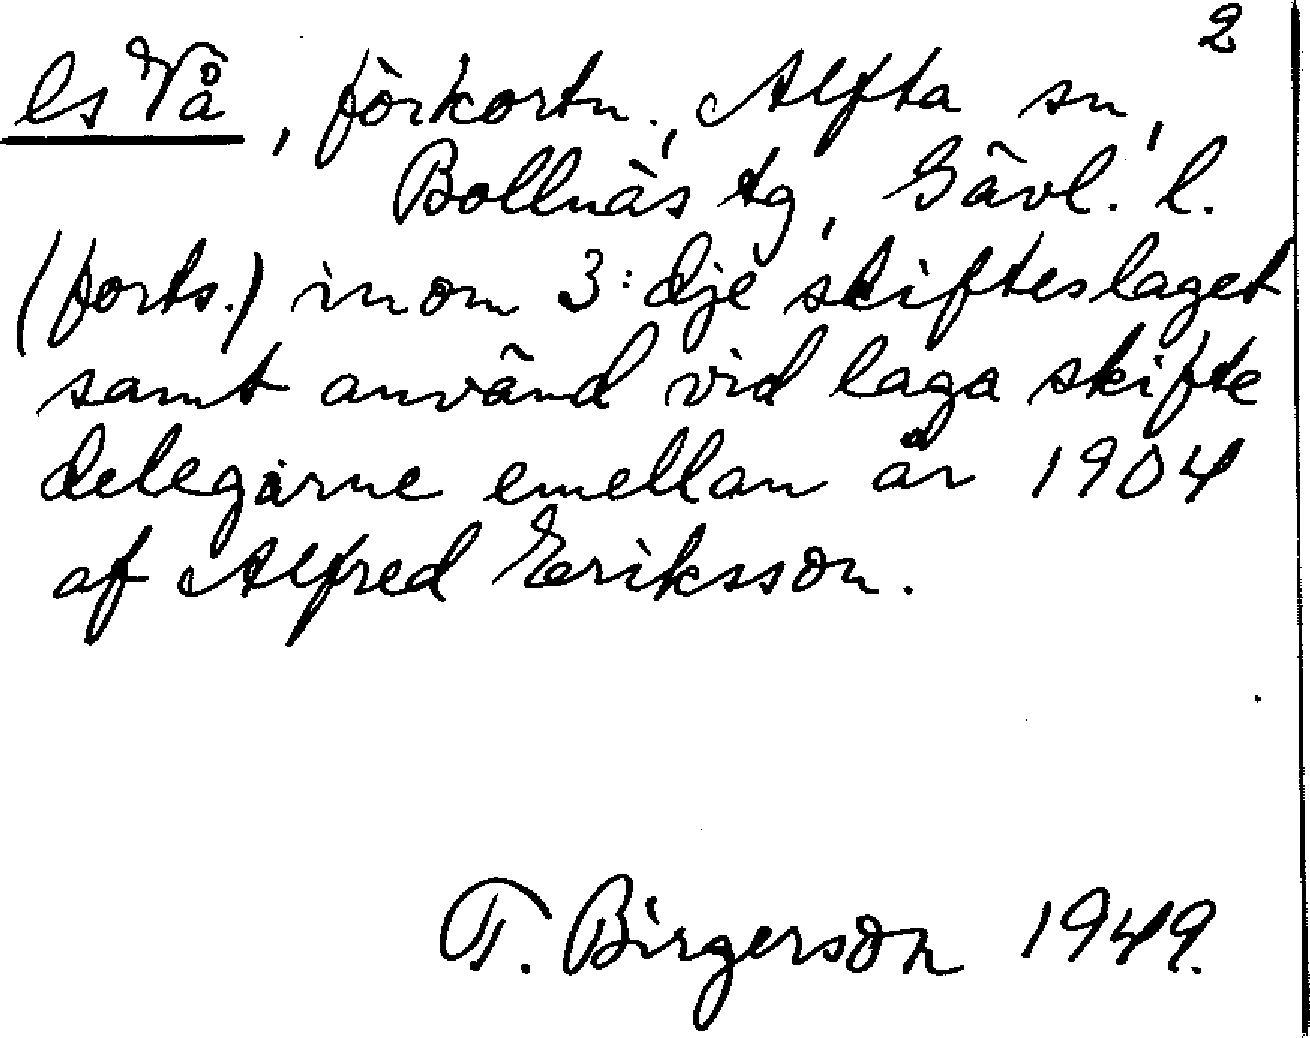 2
ls Vå, förkortn., Alfta sn,
Bollnäs tg, Gävl. l.
(forts.) inom 3:dje skifteslaget
samt använd vid laga skifte
delegarne emellan år 1904
af Alfred Eriksson.
T. Birgerson 1949.